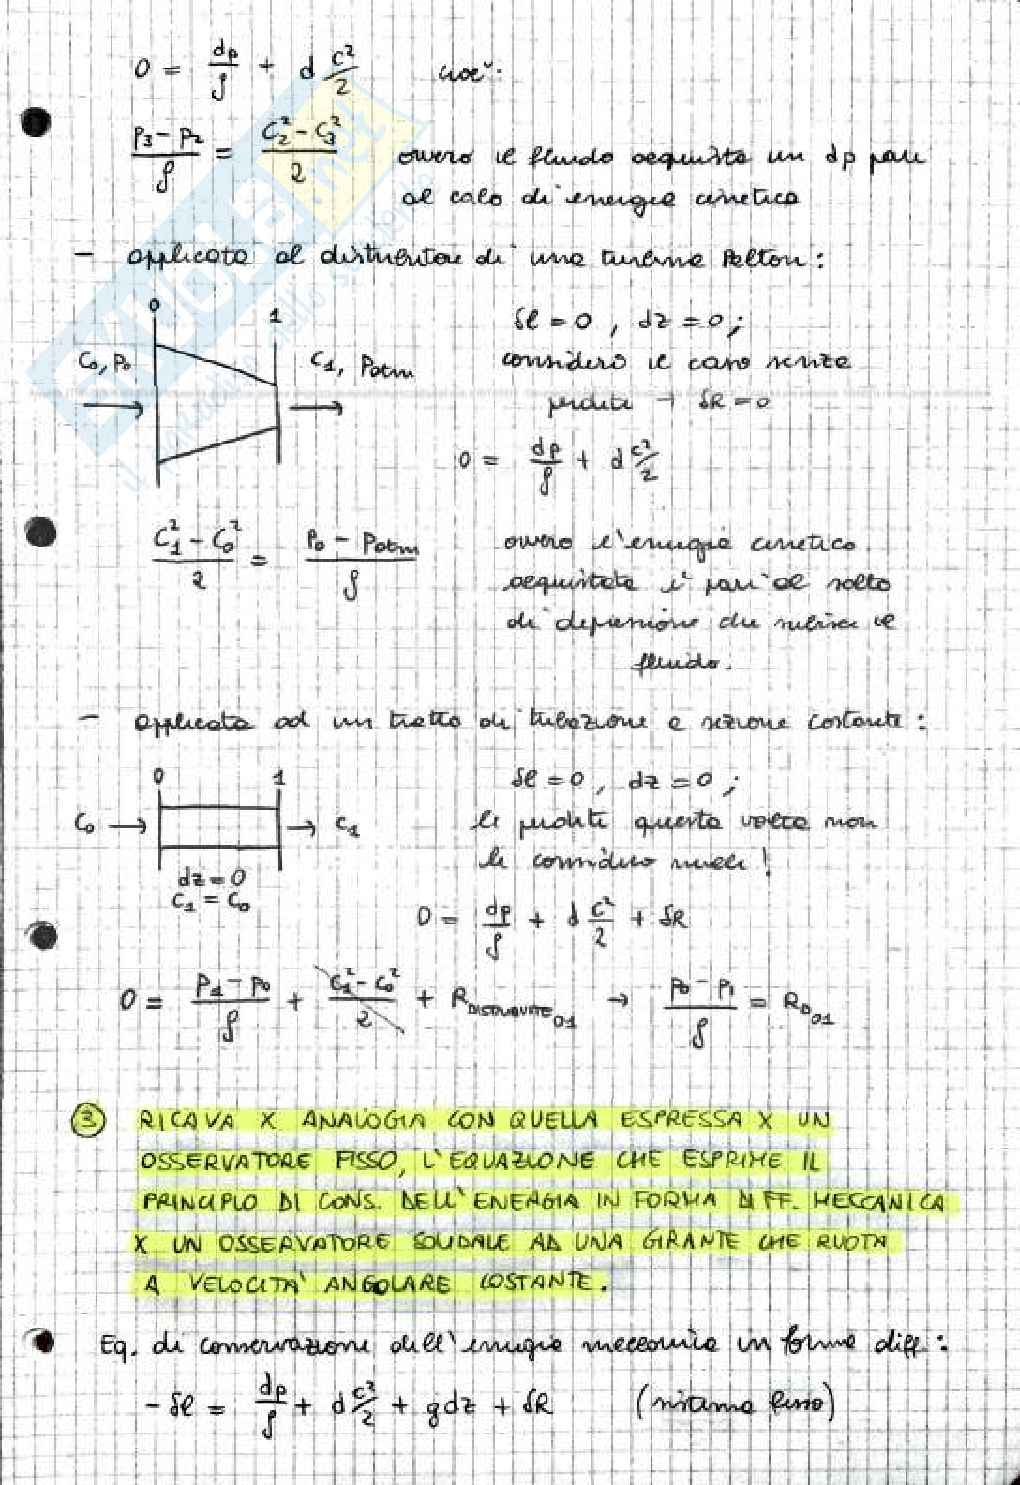 0 = dp/ρ + d c²/2 cioè:
(p3 - p2)/ρ = (C2² - C3²)/2 ovvero il fluido acquista un dp pari
al calo di energia cinetica
- applicata al distributore di una turbina Pelton:
0 1
δl = 0 , dz = 0 ;
C0, P0 C1, Patm considero il caso senza
perdite → δR = 0
0 = dp/ρ + d c²/2
(C1² - C0²)/2 = (P0 - Patm)/ρ ovvero l'energia cinetica
acquistata è pari al salto
di depressione che subisce il
fluido.
- applicata ad un tratto di tubazione a sezione costante:
0 1 δl = 0 , dz = 0 ;
C0 → → C1 le perdite questa volta non
le considero nulle!
dz = 0
C1 = C0
0 = dp/ρ + d c²/2 + δR
0 = (P1 - P0)/ρ + (C1² - C0²)/2 + R DISTRIBUITE 01 → (P0 - P1)/ρ = R D 01
③ RICAVA X ANALOGIA CON QUELLA ESPRESSA X UN
OSSERVATORE FISSO, L'EQUAZIONE CHE ESPRIME IL
PRINCIPIO DI CONS. DELL'ENERGIA IN FORMA DIFF. MECCANICA
X UN OSSERVATORE SOLIDALE AD UNA GIRANTE CHE RUOTA
A VELOCITA' ANGOLARE COSTANTE.
Eq. di conservazione dell'energia meccanica in forma diff.:
- δl = dp/ρ + d c²/2 + g dz + δR (sistema fisso)